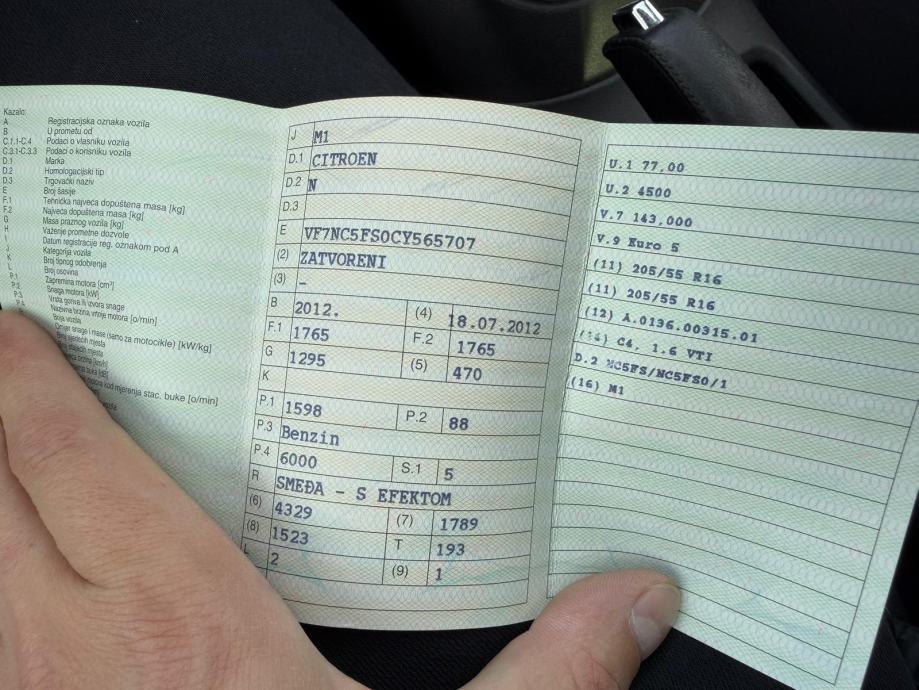 Kazalo:
A Registracijska oznaka vozila
B U prometu od
C.1.1-C.4 Podaci o vlasniku vozila
C.3.1-C.3.3 Podaci o korisniku vozila
D.1 Marka
D.2 Homologacijski tip
D.3 Trgovački naziv
E Broj šasije
F.1 Tehnička najveća dopuštena masa [kg]
F.2 Najveća dopuštena masa [kg]
G Masa praznog vozila [kg]
H Važenje prometne dozvole
I Datum registracije reg. oznakom pod A
J Kategorija vozila
K Broj tipnog odobrenja
L Broj osovina
P.1 Zapremina motora [cm³]
P.2 Snaga motora [kW]
P.3 Vrsta goriva ili izvora snage
P.4 Nazivna brzina vrtnje motora [o/min]
Boja vozila
Omjer snage i mase (samo za motocikle) [kW/kg]
kod mjerenja stac. buke [o/min]
J M1
D.1 CITROEN
D.2 N
D.3
E VF7NC5FS0CY565707
(2) ZATVORENI
(3) –
B 2012. (4) 18.07.2012
F.1 1765 F.2 1765
G 1295 (5) 470
K
P.1 1598 P.2 88
P.3 Benzin
P.4 6000 S.1 5
R SMEĐA - S EFEKTOM
(6) 4329 (7) 1789
(8) 1523 T 193
L 2 (9) 1
U.1 77,00
U.2 4500
V.7 143,000
V.9 Euro 5
(11) 205/55 R16
(11) 205/55 R16
(12) A.0136.00315.01
(14) C4, 1.6 VTI
D.2 NC5FS/NC5FS0/1
(16) M1